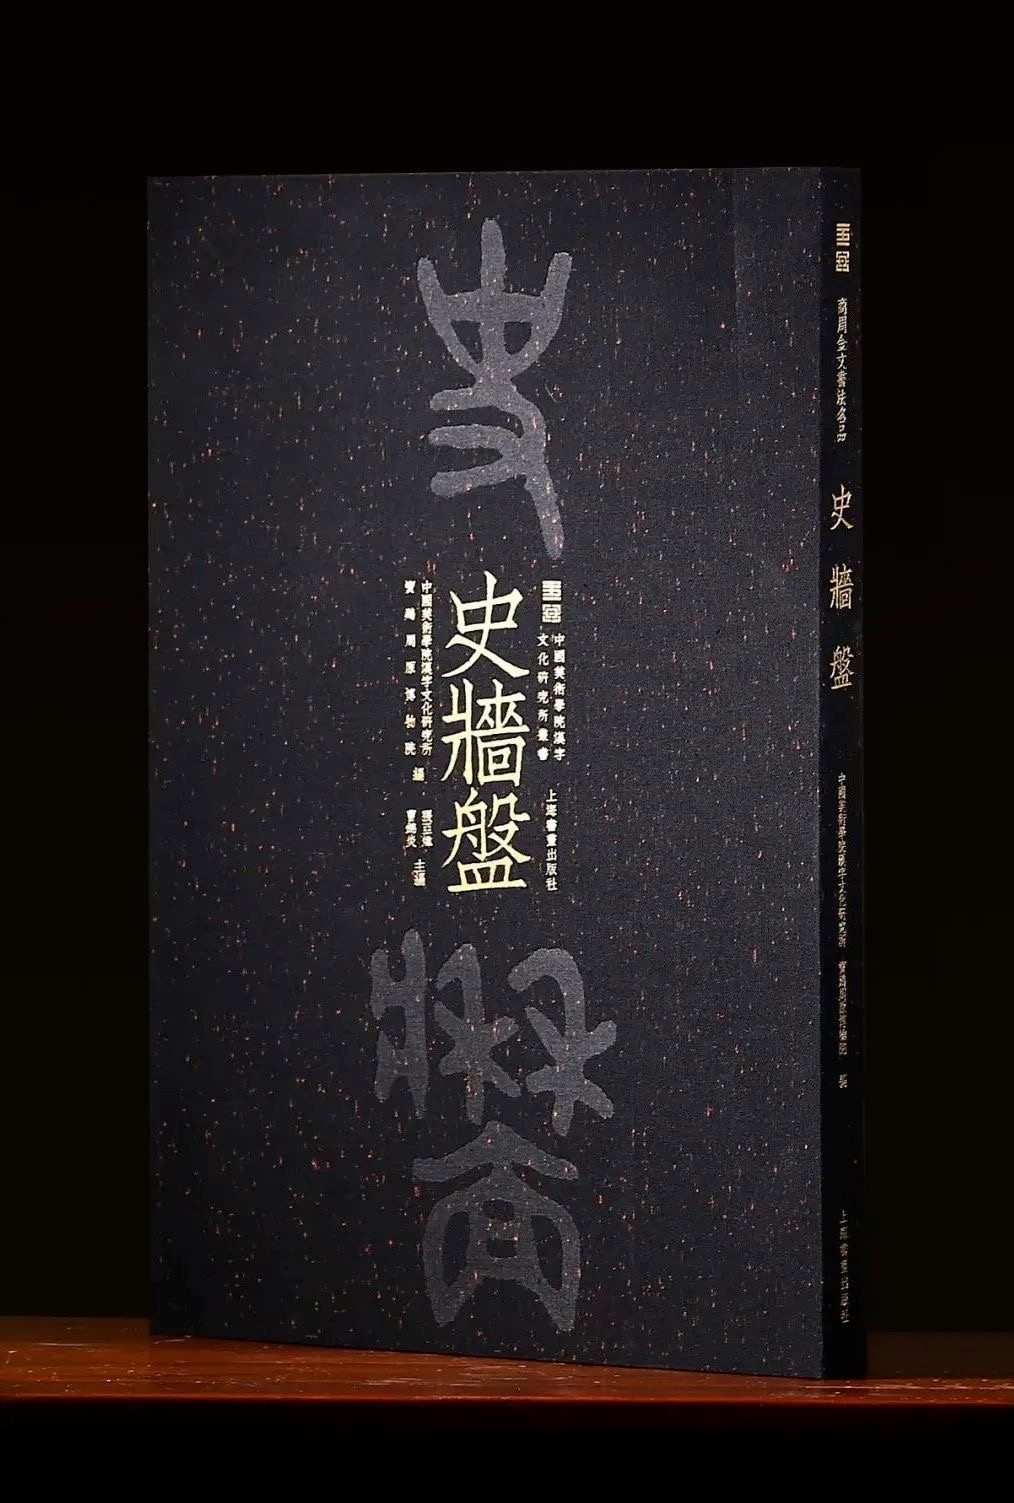 中國美術學院漢字
文化研究所叢書
上海書畫出版社
史牆盤
中國美術學院漢字文化研究所
寶雞周原博物院
編
主編
商周金文書法名品
史牆盤
中國美術學院漢字文化研究所 寶雞周原博物院 編
上海書畫出版社